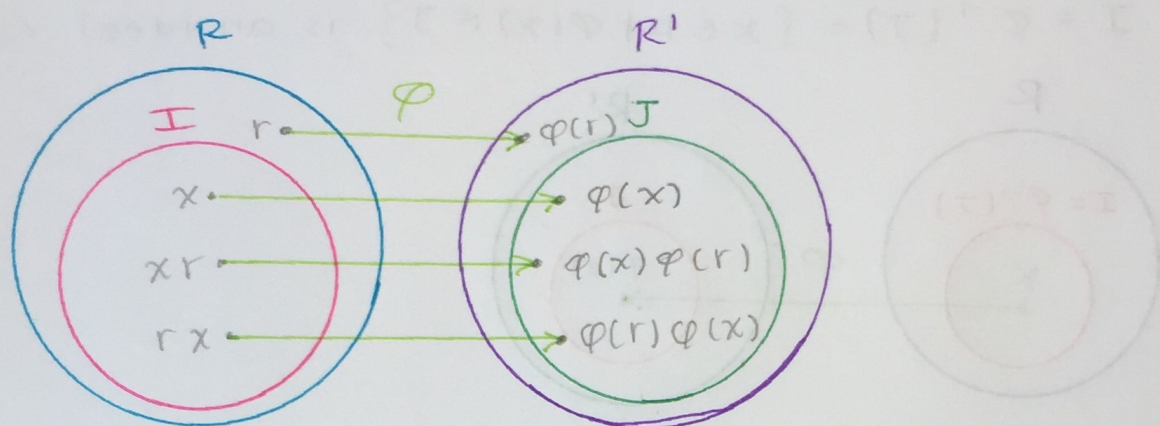 R R'
φ
I r φ(r) J
x φ(x)
xr φ(x)φ(r)
rx φ(r)φ(x)